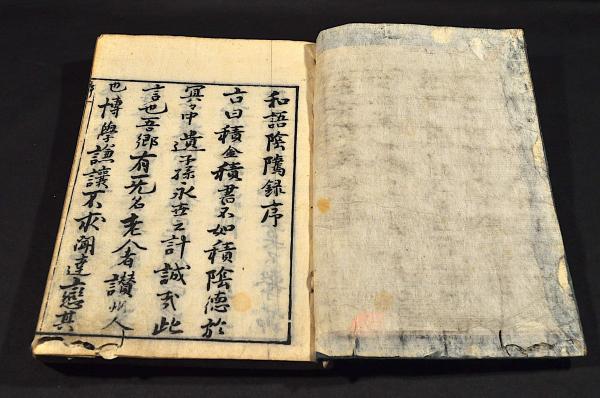 和語陰隲録序
古曰積金積書不如積陰德於
冥々中遺子孫永世之計誠哉此
言也吾鄉有一无名老人者讃州人
也博學謙讓不求聞達戀其